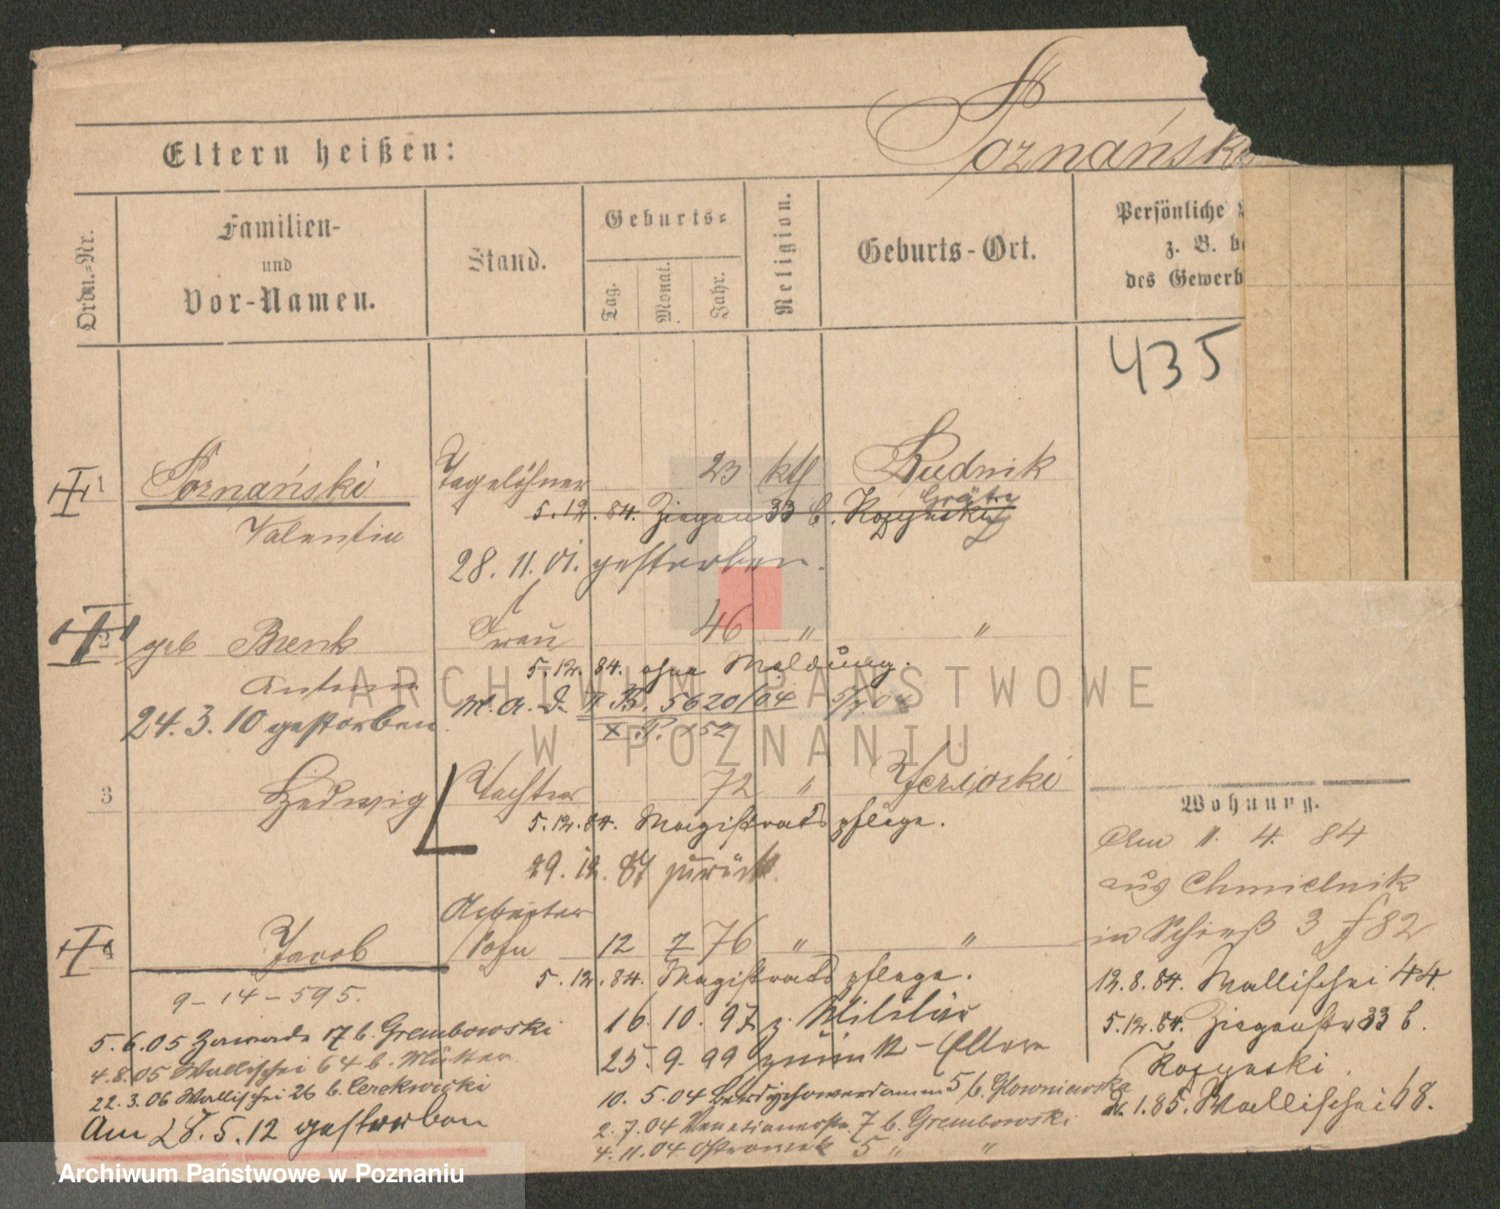 Poznański
Eltern heißen:
Ordn.-Nr.
Familien-
und
Vor-Namen.
Stand.
Geburts-
Tag.
Monat.
Jahr.
Religion.
Geburts-Ort.
Persönliche
z. B. b
des Gewerb
435
1 Poznański Tagelöhner 23 kth Rudnik
Valentin
5.12.84. Ziegen 33 b.
28.11.01. gestorben.
2 geb Brenk Frau 46 " "
5.12.84. ohne Meldung.
24.3.10 gestorben
M. A. d. II B. 5620/04
3 Hedwig Tochter 72 " Jerzioski
5.12.84. Magistrats pflege.
29.12.87 zurück
4 Jacob Arbeiter
Sohn 12 7 76 " "
9-14-595.
5.12.84. Magistrats pflege.
16.10.97 z. Militär
25.9.99 zurück - Eltern
10.5.04 5 b. Glowniewska
2.7.04 7 b. Grembowski
4.11.04 Ostrowek 5 " "
5.6.05 Zawade 17 b. Grembowski
4.8.05 Wallischei 64 b. Mutter
22.3.06 Wallischei 26 b. Cerekwicki
Am 28.5.12 gestorben
Wohnung.
Am 1.4.84
aus Chmielnik
in Schieß 3 f 82
12.8.84. Wallischei 44
5.12.84. Ziegenstr 33 b.
1.85. Wallischei 68.
ARCHIWUM PAŃSTWOWE
W POZNANIU
Archiwum Państwowe w Poznaniu